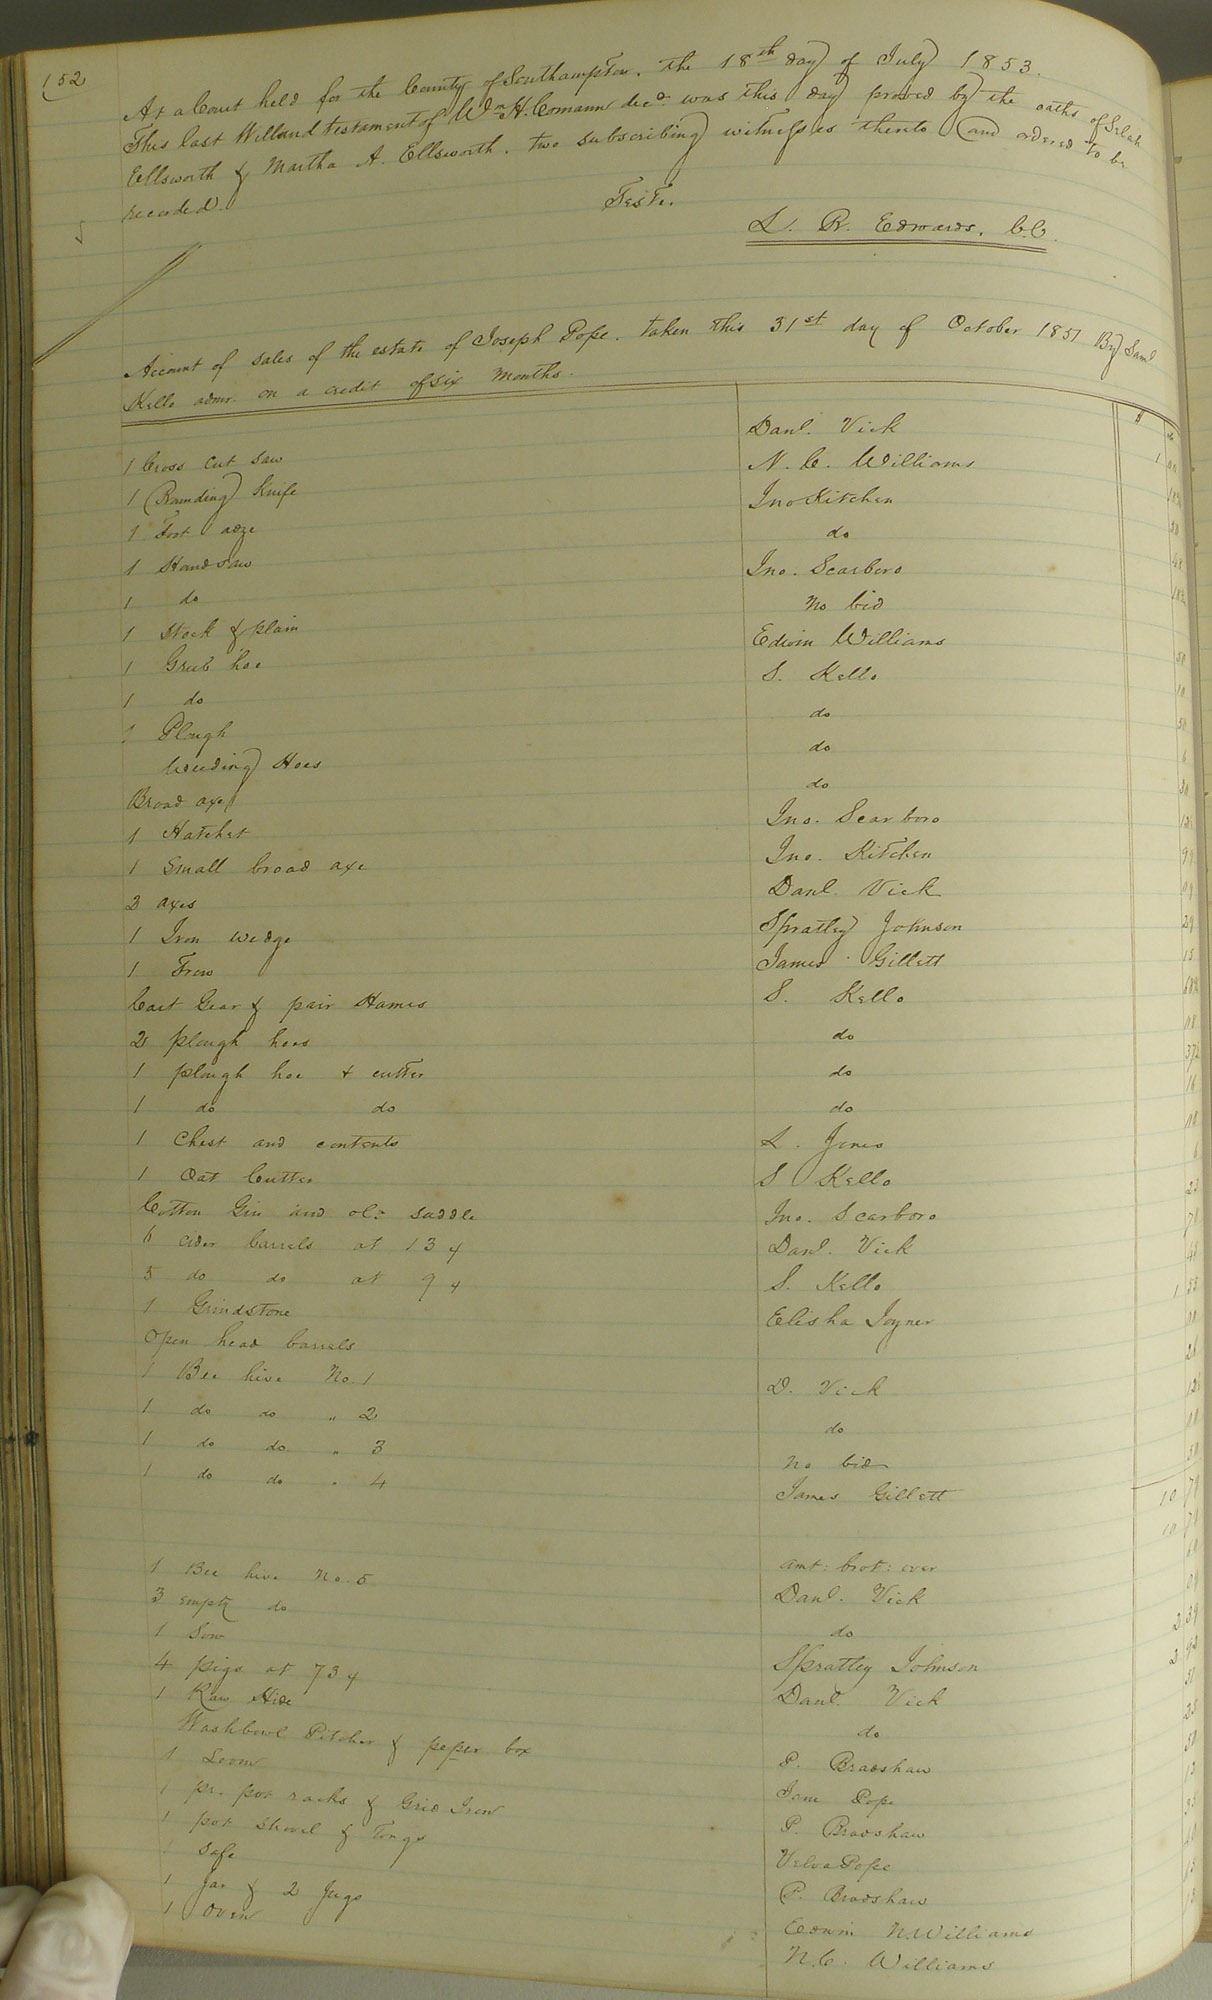 152
At a Court held for the County of Southampton. the 18th day of July 1853.
This last Will and testament of Wm H. Comann decd. was this day proved by the oaths of Selah
Ellsworth & Martha A. Ellsworth. two subscribing witnesses thereto and ordered to be
recorded.
Teste.
L. R. Edwards. C.C.
Account of sales of the estate of Joseph Pope. taken this 31st day of October 1851 By Saml
Kello admr. on a credit of six months.
1 Cross cut saw Danl. Vick
1 Rounding Knife N. C. Williams
1 Foot adze Jno Kitchen
1 Hand saw do
1 do Jno. Scarboro
1 Stock & plain No bid
1 Grub hoe Edwin Williams
1 do S. Kello
1 Plough do
Weeding Hoes do
Broad axe do
1 Hatchet Jno. Scarboro
1 Small broad axe Jno. Kitchen
2 axes Danl. Vick
1 Iron wedge Spratley Johnson
1 Frow James Gillett
Cart Gear & pair Hames S. Kello
2 plough hoes do
1 plough hoe & cutter do
1 do do do
1 Chest and contents L. Jones
1 Oat Cutter S Kello
Cotton Gin and old saddle Jno. Scarboro
6 cider barrels at 13 Danl. Vick
5 do do at 9 S. Kello
1 Grindstone Elisha Joyner
Open head barrels
1 Bee hive No. 1 D. Vick
1 do do " 2 do
1 do do " 3 No bid
1 do do " 4 James Gillett
10 79
amt: brot: over 10 79
1 Bee hive No. 5 Danl. Vick
3 empty do do
1 Sow Spratley Johnson
4 pigs at 73 Danl. Vick
1 Raw Hide do
Washbowl Pitcher & peper box P. Bradshaw
1 Loom Jane Pope
1 pr. pot racks & Grid Iron P. Bradshaw
1 pot Shovel & Tongs Velva Pope
1 Safe P. Bradshaw
1 Jar & 2 Jugs Edwin N. Williams
1 Oven N.C. Williams